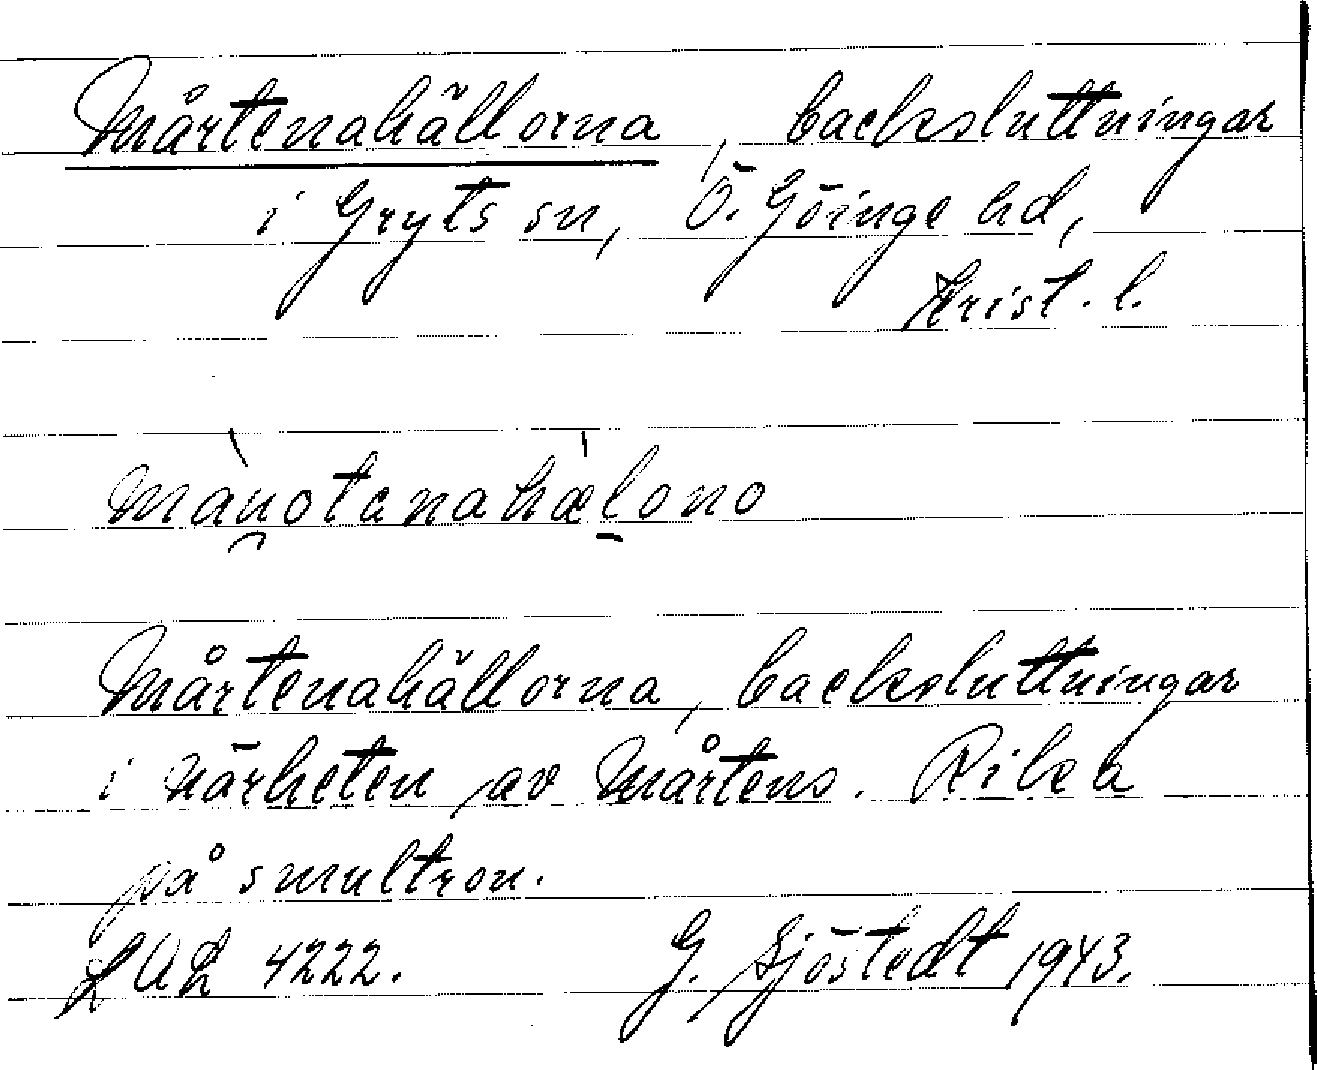 Mårtenahällorna, backsluttningar
i Gryts sn, Ö. Göinge hd,
Krist. l.
màu̯otenahæ̍l̠ono
Mårtenahällorna, backsluttningar
i närheten av Mårtens. Rika
på smultron.
LUL 4222.
G. Sjöstedt 1943.